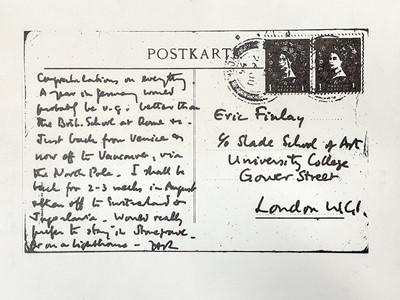 POSTKARTE
Congratulations on everything
A year on penury would
probably be v.g. better than
the Brit. School at Rome so.
Just back from Venice &
now off to Vancouver, via
the North Pole. I shall be
back for 2-3 weeks in August
often off to Switzerland &
Jugoslavia. Would really
prefer to stay in
or on a lighthouse -
Eric Finlay
c/o Slade School of Art
University College
Gower Street
London W.C.1.